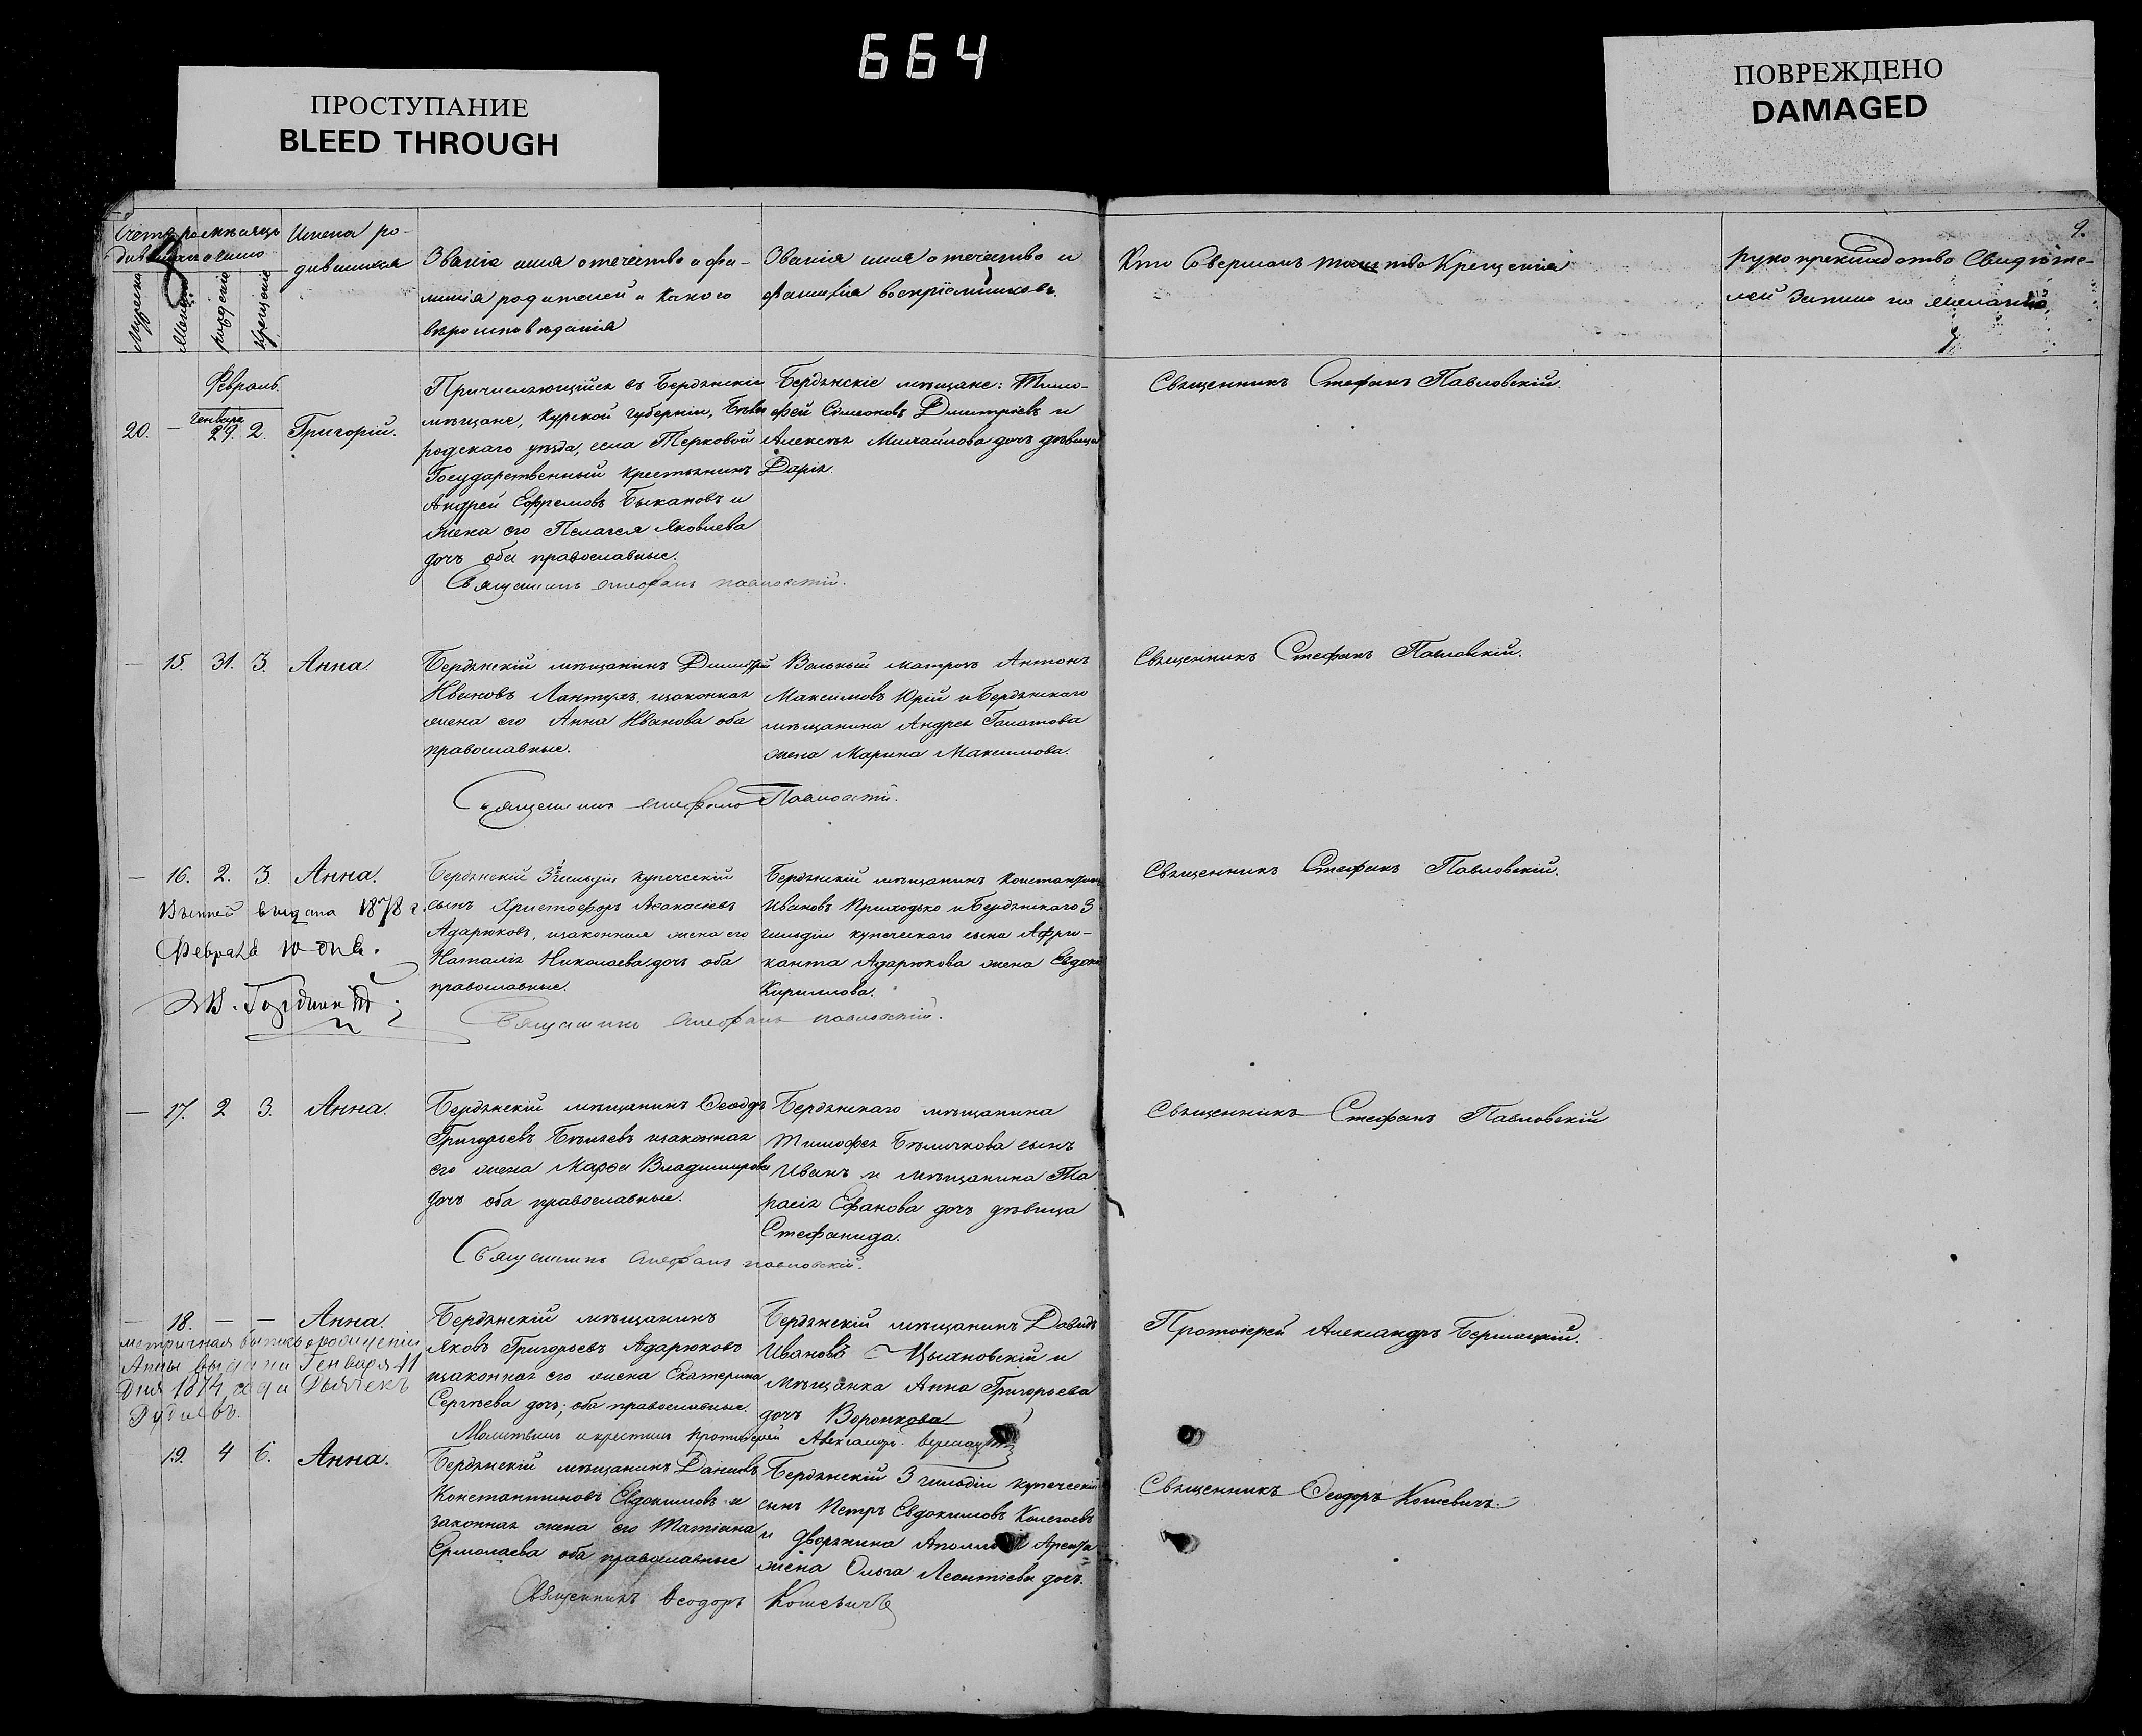 664
ПРОСТУПАНИЕ
BLEED THROUGH
ПОВРЕЖДЕНО
DAMAGED
9.
Имена ро-
дившихся
Званіе имя отечество и фа-
милія родителей и какого
вѣроисповѣданія
Званія имя отечество и
фамилія воспріемниковъ.
Кто Совершалъ таинство Крещенія
Рукоприкладство Свидѣте-
лей записи по желанію
Февраль.
20. — Генваря 29. 2. Григорій.
Причисляющійся въ Бердянскіе
мѣщане, Курской губерніи, Бѣлго
родскаго уѣзда, села Терковой
Государственный крестьянинъ
Андрей Ефремовъ Быкановъ и
жена его Пелагея Яковлева
дочь оба православные.
Священникъ Стефанъ Павловскій.
Бердянскіе мѣщане: Тимо-
фей Симеоновъ Дмитріевъ и
Алексѣя Михайлова дочь дѣвица
Дарія.
Священникъ Стефанъ Павловскій.
— 15. 31. 3. Анна.
Бердянскій мѣщанинъ Димитрій
Ивановъ Лантухъ, изаконная
жена его Анна Иванова оба
православные.
Священникъ Стефанъ Павловскій.
Вольный матрозъ Антонъ
Максимовъ Юрій и Бердянскаго
мѣщанина Андрея Галатова
жена Марина Максимова.
Священникъ Стефанъ Павловскій.
— 16. 2. 3. Анна.
выдана 1878 г.
Февраля 10 дня.
Бердянскій 3й гильдіи купеческій
сынъ Христофоръ Аѳанасіевъ
Адарюковъ, изаконная жена его
Наталія Николаева дочь оба
православные.
Священникъ Стефанъ Павловскій.
Бердянскій мѣщанинъ Константинъ
Ивановъ Приходько и Бердянскаго 3
гильдіи купеческаго сына Афри-
канта Адарюкова жена Евдокі
Кириллова.
Священникъ Стефанъ Павловскій.
— 17. 2 3. Анна.
Бердянскій мѣщанинъ Ѳеодоръ
Григорьевъ Бѣляевъ изаконная
его жена Марѳа Владимирова
дочь оба православные.
Священникъ Стефанъ Павловскій.
Бердянскаго мѣщанина
Тимофея Бѣличкова сынъ
Иванъ и мѣщанина Та
расія Ефанова дочь дѣвица
Стефанида.
Священникъ Стефанъ Павловскій
— 18. — — Анна.
метричная выпись о рожденіи
Анны выдана Генваря 11
Дня 1874 года Дьячекъ
Бердянскій мѣщанинъ
Яковъ Григорьевъ Адарюковъ
изаконная его жена Екатерина
Сергѣева дочь, оба православные.
Молитвилъ и крестилъ Протоіерей Александръ
Бердянскій мѣщанинъ Давидъ
Ивановъ Цыгановскій и
мѣщанка Анна Григорьева
дочь Воронкова
Протоіерей Александръ
19. 4 6. Анна.
Бердянскій мѣщанинъ Даніилъ
Константиновъ Евдокимовъ и
законная жена его Татіана
Ермолаева оба православные
Священникъ Ѳеодоръ Кошевичъ
Бердянскій 3 гильдіи купеческій
сынъ Петръ Евдокимовъ
и дворянина
жена Ольга Леонтіева дочь.
Священникъ Ѳеодоръ Кошевичъ.